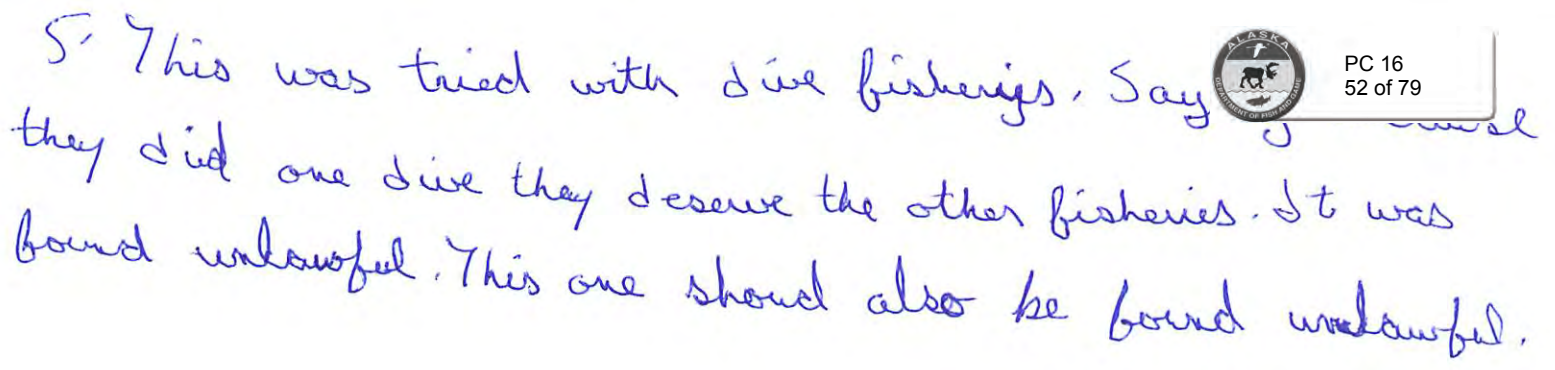 5. This was tried with dive fisherys. Say
they did one dive they deserve the other fisheries. It was
found unlawful. This one shoud also be found unlawful.
ALASKA
DEPARTMENT OF FISH AND GAME
PC 16
52 of 79